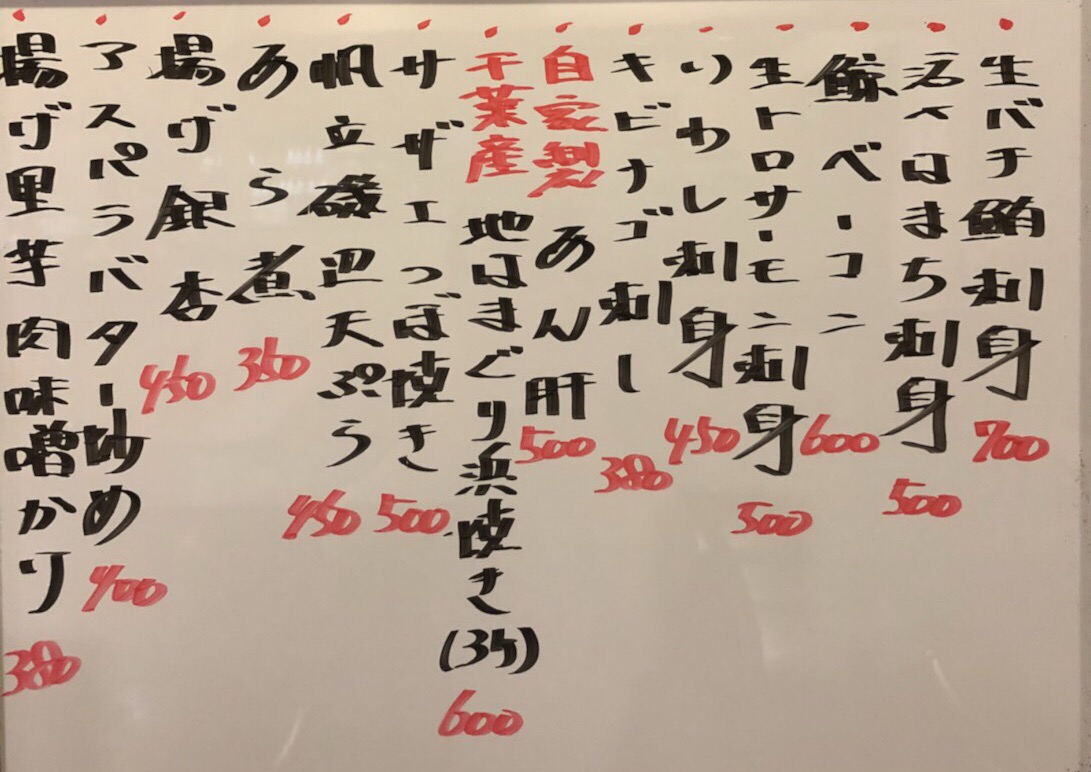 生バチ鮪刺身 700
活〆はまち刺身 500
鯨ベーコン 600
生トロサーモン刺身 500
いわし刺身 450
キビナゴ刺し 380
自家製 あん肝 500
千葉産 地はまぐり浜焼き(3ケ) 600
サザエつぼ焼き 500
帆立磯辺天ぷら 450
あら煮 360
揚げ銀杏 450
アスパラバター炒め 400
揚げ里芋肉味噌かけ 380